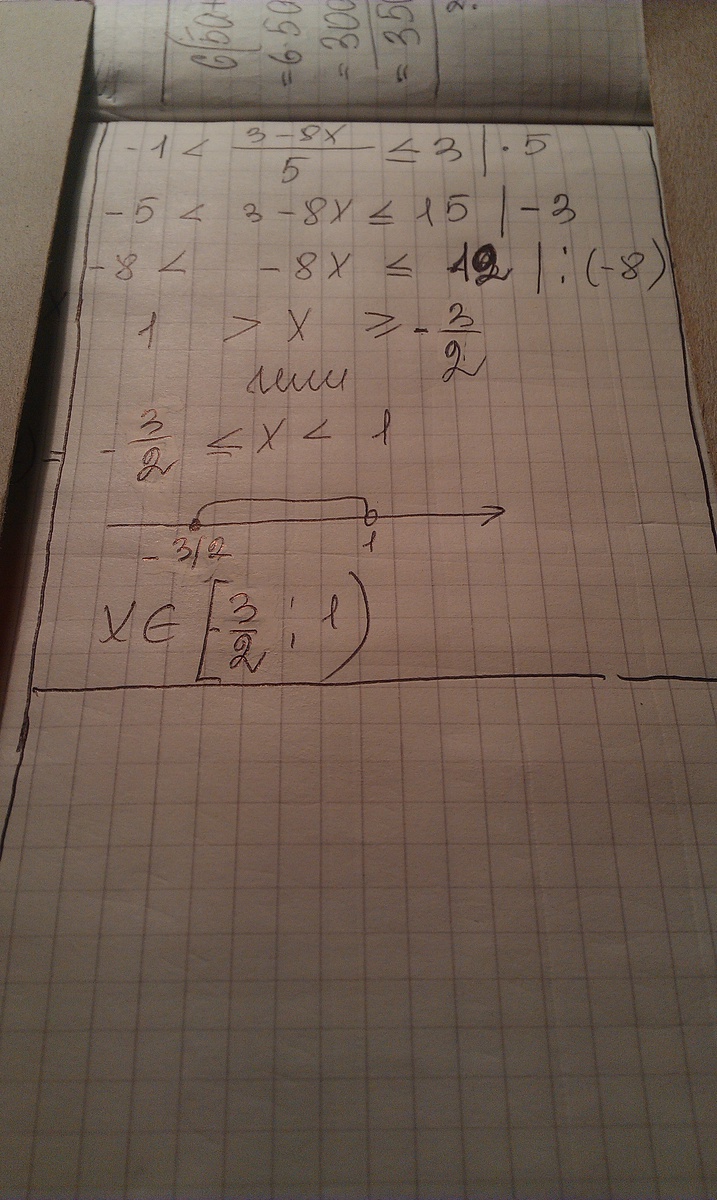 6(50+
=6·50
=300
=350
-1 < \frac{3-8x}{5} ≤ 3 | · 5
-5 < 3-8x ≤ 15 | -3
-8 < -8x ≤ 12 | : (-8)
1 > x ≥ -\frac{3}{2}
или
-\frac{3}{2} ≤ x < 1
-3/2 1
x ∈ [-\frac{3}{2} ; 1)